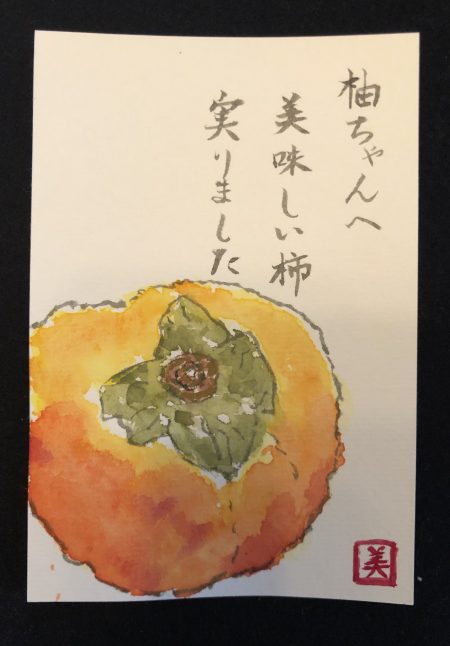 柚ちゃんへ
美味しい柿
実りました
美